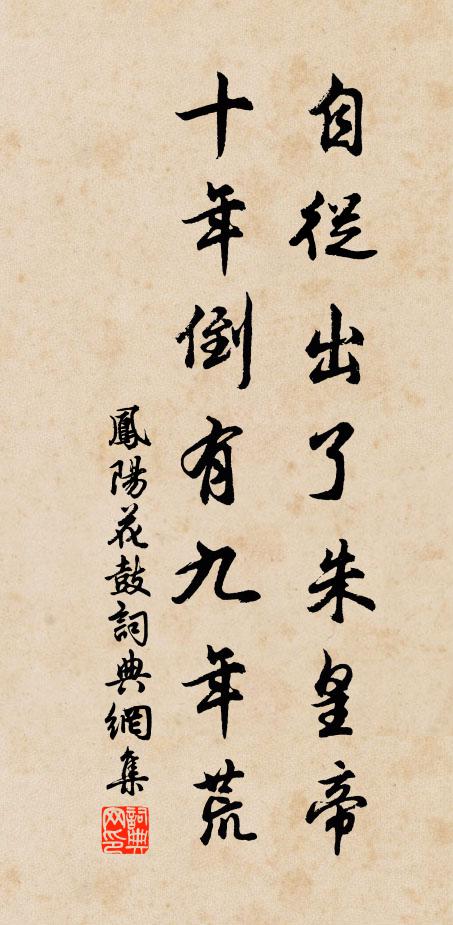 自從出了朱皇帝
十年倒有九年荒
鳳陽花鼓詞典網集
詞典網印